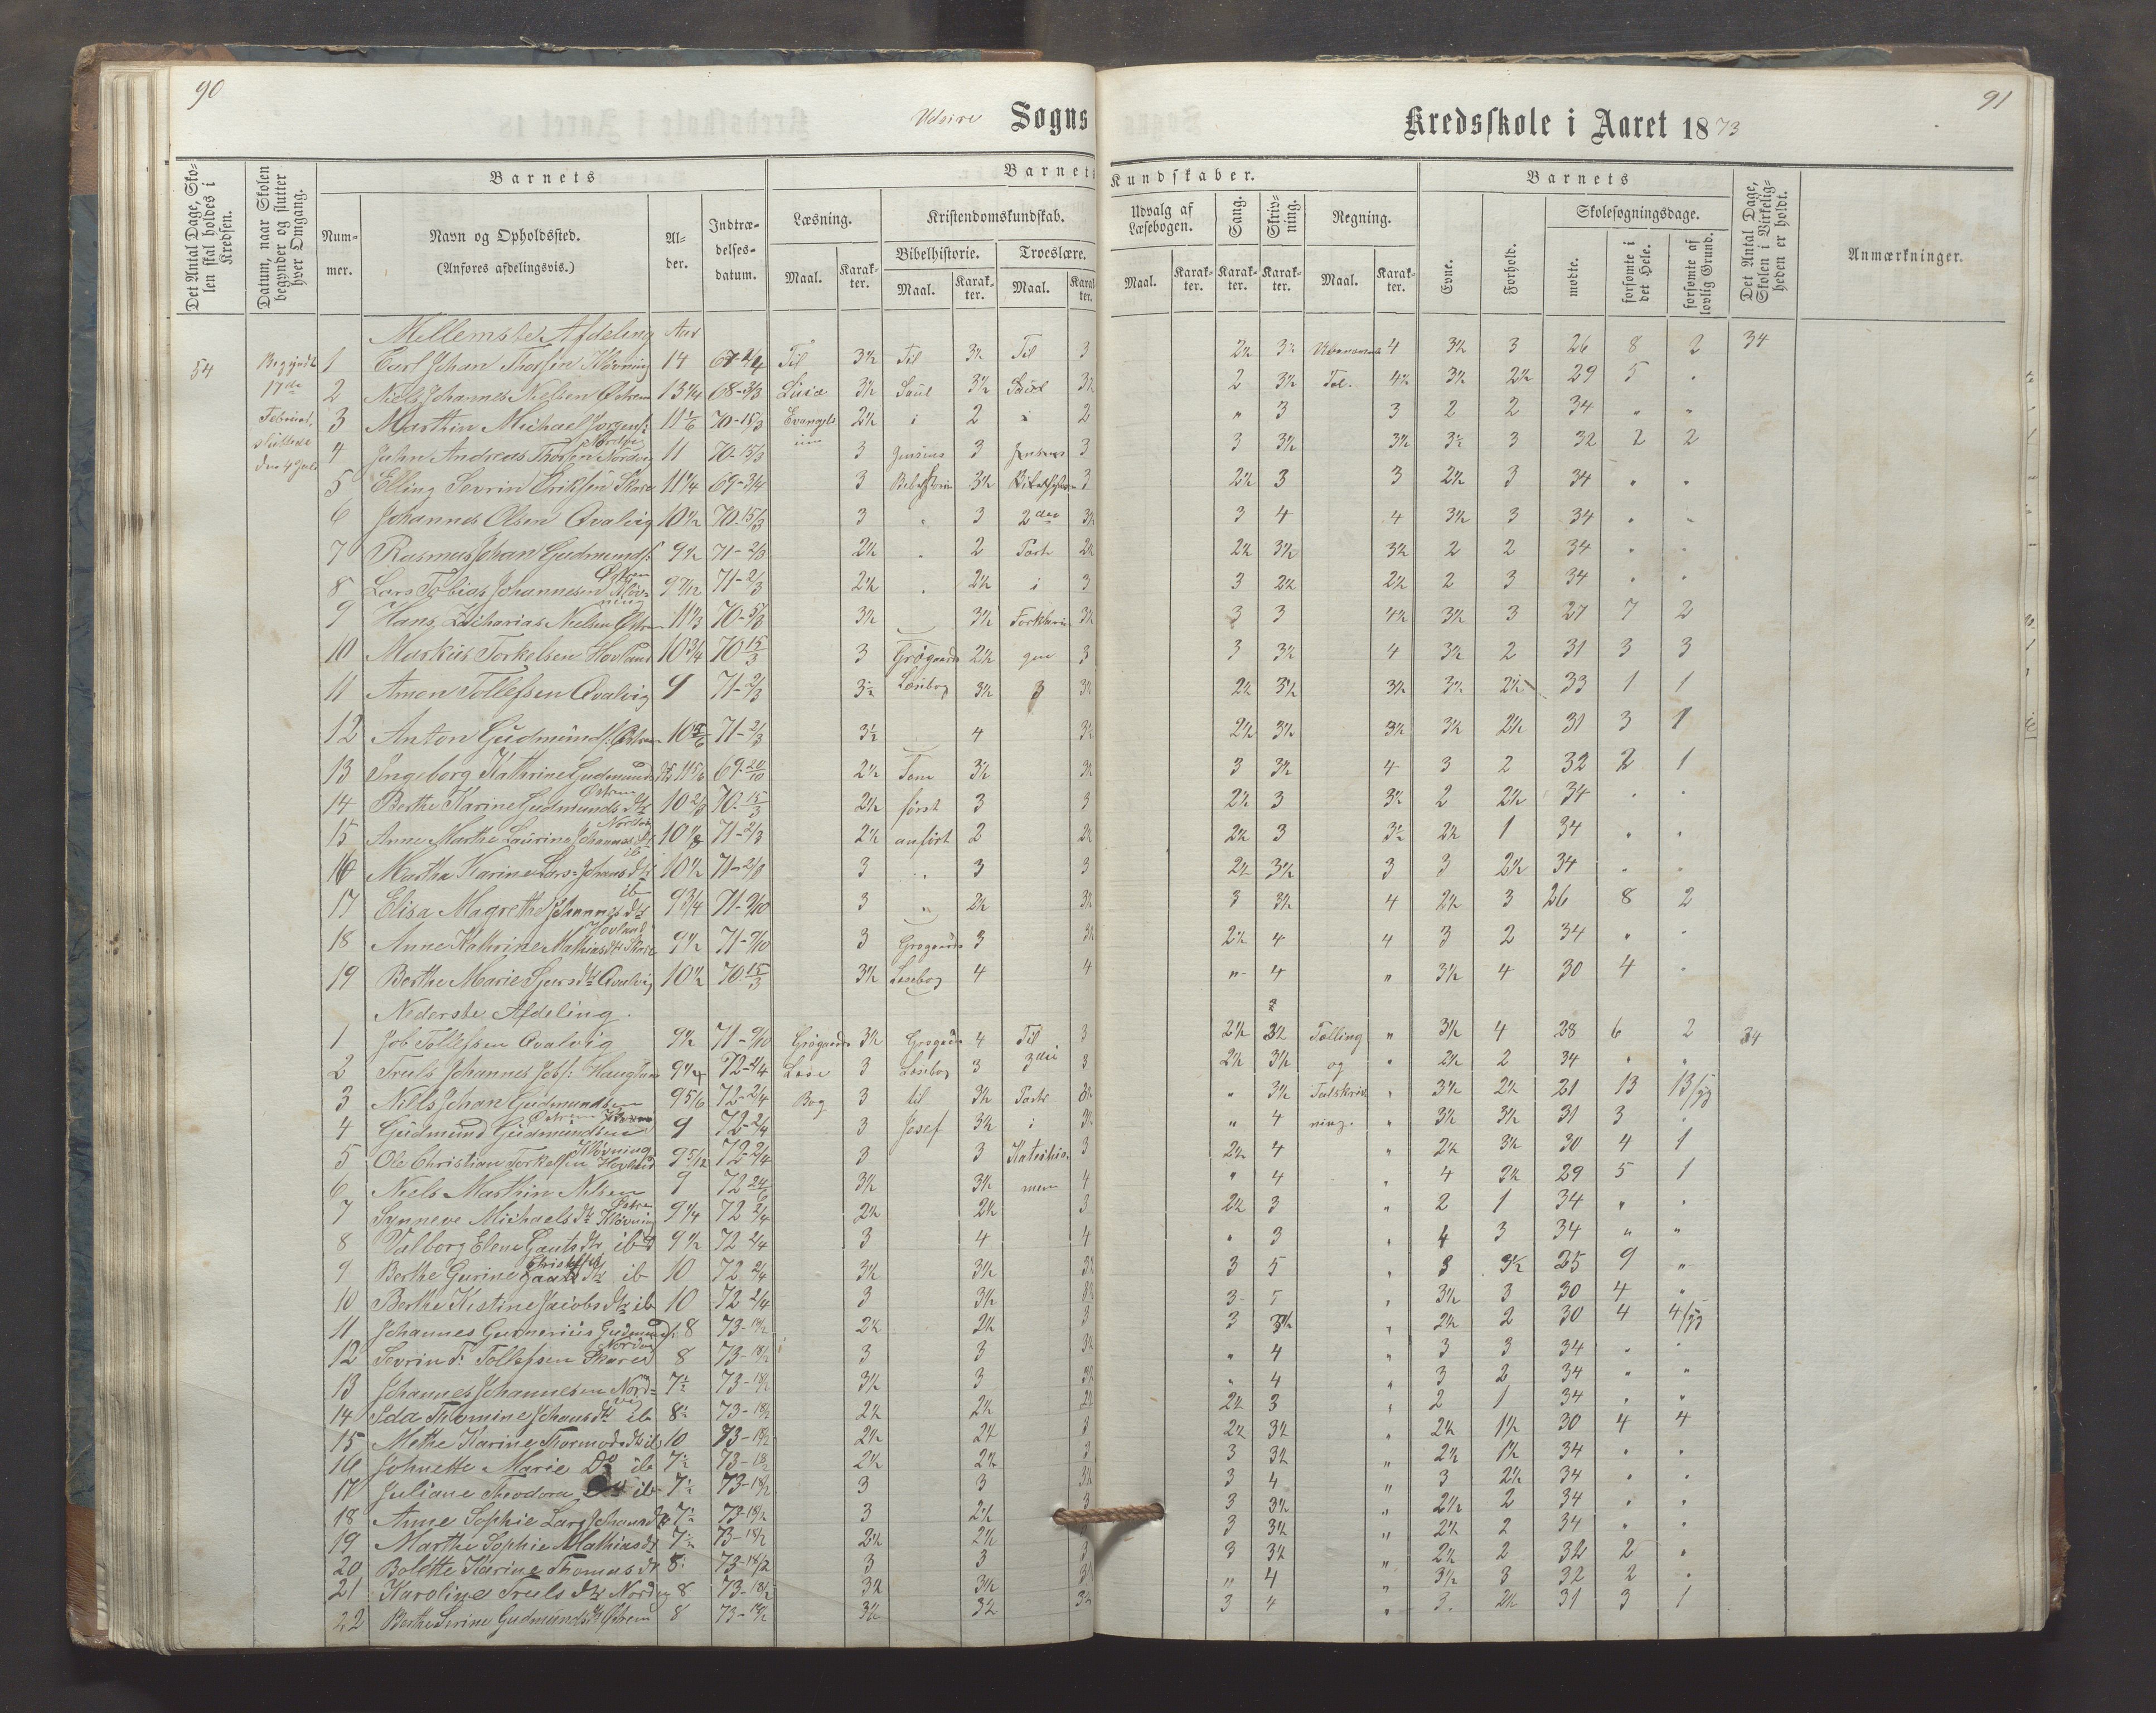 90
Udsire Sogns
Kredsskole i Aaret 1873
91
Det Antal Dage, Skolen skal holdes i Kredsen.
Datum, naar Skolen begynder og slutter hver Omgang.
Barnets
Nummer.
Navn og Opholdssted.
(Anføres afdelingsvis.)
Alder.
Indtrædelsesdatum.
Barnets Kundskaber.
Læsning.
Maal.
Karakter.
Kristendomskundskab.
Bibelhistorie.
Maal.
Karakter.
Troeslære.
Maal.
Karakter.
Udvalg af Læsebogen.
Maal.
Karakter.
Sang.
Karakter.
Skrivning.
Karakter.
Regning.
Maal.
Karakter.
Barnets
Evne.
Forhold.
Skolesøgningsdage.
mødte.
forsømte i det Hele.
forsømte af lovlig Grund.
Det Antal Dage, Skolen i Virkeligheden er holdt.
Anmærkninger.
Mellemste Afdeling Aar
54 Begyndte 1 Carl Johan Thorsen Kløvning 14 67-2/4 Til 3½ Til 3½ Til 3 2½ 3½ 4 3½ 3 26 8 2 34
17de 2 Niels Johannes Nielsen Østrem 13¼ 68-3/3 3½ Saul 3½ Saul 3½ 2 3½ Tal. 4½ 3½ 2½ 29 5 "
Februar, 3 Marthin Michael Jorgens: 11 1/6 70-15/3 Evangelium 2½ i 2 i 2 " 3 3 2 2 34 " "
sluttede den 4 Juli 4 John Andreas Thorsen Nordvig 11 70-15/3 3 3 3 3 3½ 3½ 3½ 3 32 2 2
5 Elling Sevrin Eriksen Skare 11¼ 69-3/4 3 Bibelhistorie 3½ 3 2½ 3 3 2½ 3 34 " "
6 Johannes Olsen Qvalvig 10½ 70-15/3 3 " 3 2den 3½ 3 4 4 3½ 3 34 " "
7 Rasmus Johan Gudmunds: Østrem 9½ 71-2/3 2½ " 2 Part 2½ 2½ 3½ 3½ 2 2 34 " "
8 Lars Tobias Johannesen Kløvning 9 7/12 71-2/3 2½ " 2½ i 3 3 2½ 2½ 2 3 34 " "
9 Hans Zacharias Nielsen Østrem 11⅓ 70-5/3 3½ 3½ 3½ 3 3 4½ 3½ 3 27 7 2
10 Markus Torkelsen Hovland 10¾ 70 15/3 3 Grøgaards 2½ 3 3 3½ 4 3½ 2 31 3 3
11 Amon Tollefsen Qvalvig 9 71-2/3 3½ Læsebog 3½ 3½ 2½ 3½ 3½ 3½ 2½ 33 1 1
12 Anton Gudmunds: Østrem 10 5/6 71-2/3 3½ 4 3½ 2½ 3½ 3½ 3½ 2½ 31 3 1
13 Ingeborg Kathrine Gudmundsdtr 11 5/6 69-20/10 2½ Som 3½ 3½ 3 3½ 4 3 2 32 2 1
14 Berthe Karine Gudmundsdtr Østrem 10 2/3 70-15/3 2½ først 3 3 2½ 3 3½ 2 2½ 34 " "
15 Anne Marthe Laurine Johannesdtr Nordvig 10 71-2/3 2½ anført 2 2½ 2½ 3 3½ 2½ 1 34 " "
16 Martha Karine Lars Johansdtr ib 10½ 71-2/3 3 " 3 3 2½ 3½ 3 3 2½ 34 " "
17 Elisa Magrethe Johannesdtr ib 9¾ 71-9/10 3 " 2½ 3½ 3 3½ 4 2½ 3 26 8 2
18 Anne Kathrine Mathiasdtr Skare Hovland 9½ 71-9/10 3 Grøgaards 3 3½ 2½ 4 4 3 2 34 " "
19 Berthe Marie Sjursdtr Qvalvig 10½ 70 15/3 3½ Læsebog 4 4 " 4 " 3½ 4 30 4 "
Nederste Afdeling.
1 Job Tollefsen Qvalvig 9½ 71-9/10 Grøgaards 3½ Grøgaards 4 Til 3 2½ 3½ Tælling " 3½ 4 28 6 2 34
2 Truls Johannes Jobs: Haugland 9¼ 72-2/4 Læse 3 Læsebog 3 3die 3 2½ 3½ og " 2½ 2 34 " "
3 Niels Johan Gudmundsen Østrem 9 5/6 72-2/4 Bog 3 til 3½ Parti 3½ " 3½ Talskriv " 3½ 2½ 21 13 13/sg
4 Gudmund Gudmundsen Kløvning 9 72-2/4 3 Josef 3½ i 3½ " 4 ning. " 3½ 3½ 31 3 "
5 Ole Christian Torkelsen Hovland 9 5/12 72-2/4 3 3 Katechis 3 2½ 4 " 2½ 3½ 30 4 1
6 Niels Marthin Nilsen Østrem 9 72-24/6 3½ 3½ men 4 " 4 " 4 3½ 29 5 1
7 Synneve Michaelsdtr Kløvning 9¼ 72 2/4 2½ 2½ 3 2½ 3 " 2 1 34 " "
8 Valborg Elene Gautsdtr ibd 9½ 72 2/4 3 4 4 " 3 " 4 3 34 " "
9 Berthe Gurine dtr ib 10 72 2/4 3½ 3½ 3½ 3 5 " 3 3½ 25 9 "
10 Berthe Kistine Jacobsdtr ib 10 72-2/4 3 3½ 3½ 3 5 " 3½ 3 30 4 "
11 Johannes Gunnerius Gudmunds: 8 73-18/2 2½ 2½ 3 3 3½ " 2½ 2 30 4 4/sg
12 Sevrin T: Tollefsen Skare Nordvig 8 73-18/2 3 3 3½ " 4 " 3 3 34 " "
13 Johannes Johannesen Nordvig 7½ 73-18/2 3½ 3 3½ " 4 " 3 2 34 " "
14 Ida Thomine Johansdtr ib 8½ 73-18/2 2½ 2½ 2½ 2½ 3 " 2 1 34 " "
15 Methe Karine Thormodsdtr ib 10 73-18/2 2½ 2½ 3 2½ 3½ " 2½ 1½ 30 4 4
16 Johnette Marie Do ib 7½ 73-18/2 2½ 2½ 3 3 3½ " 2½ 1½ 34 " "
17 Juliane Theodora ib 7½ 73-18/2 3 3 3½ 3 4 " 3 2½ 34 " "
18 Anne Sophie Lars Johansdtr 7½ 73-18/2 3 2½ 3 3 3½ " 2½ 2 34 " "
19 Marthe Sophie Mathiasdtr 7½ 73-18/2 2½ 2½ 3 3½ " 2½ 2 34 " "
20 Bolette Karine Thomasdtr 8 73-18/2 3 3 3 3 3½ " 2½ 2 32 2 "
21 Karoline Trulsdtr Nordvig 8 73-18/2 3½ 3½ 3½ " 4 " 3½ 3 32 2 "
22 Berthe Serine Gudmundsdtr Østrem 8 73-18/2 3½ 3½ 3½ 3 4 " 3 2½ 31 3 1